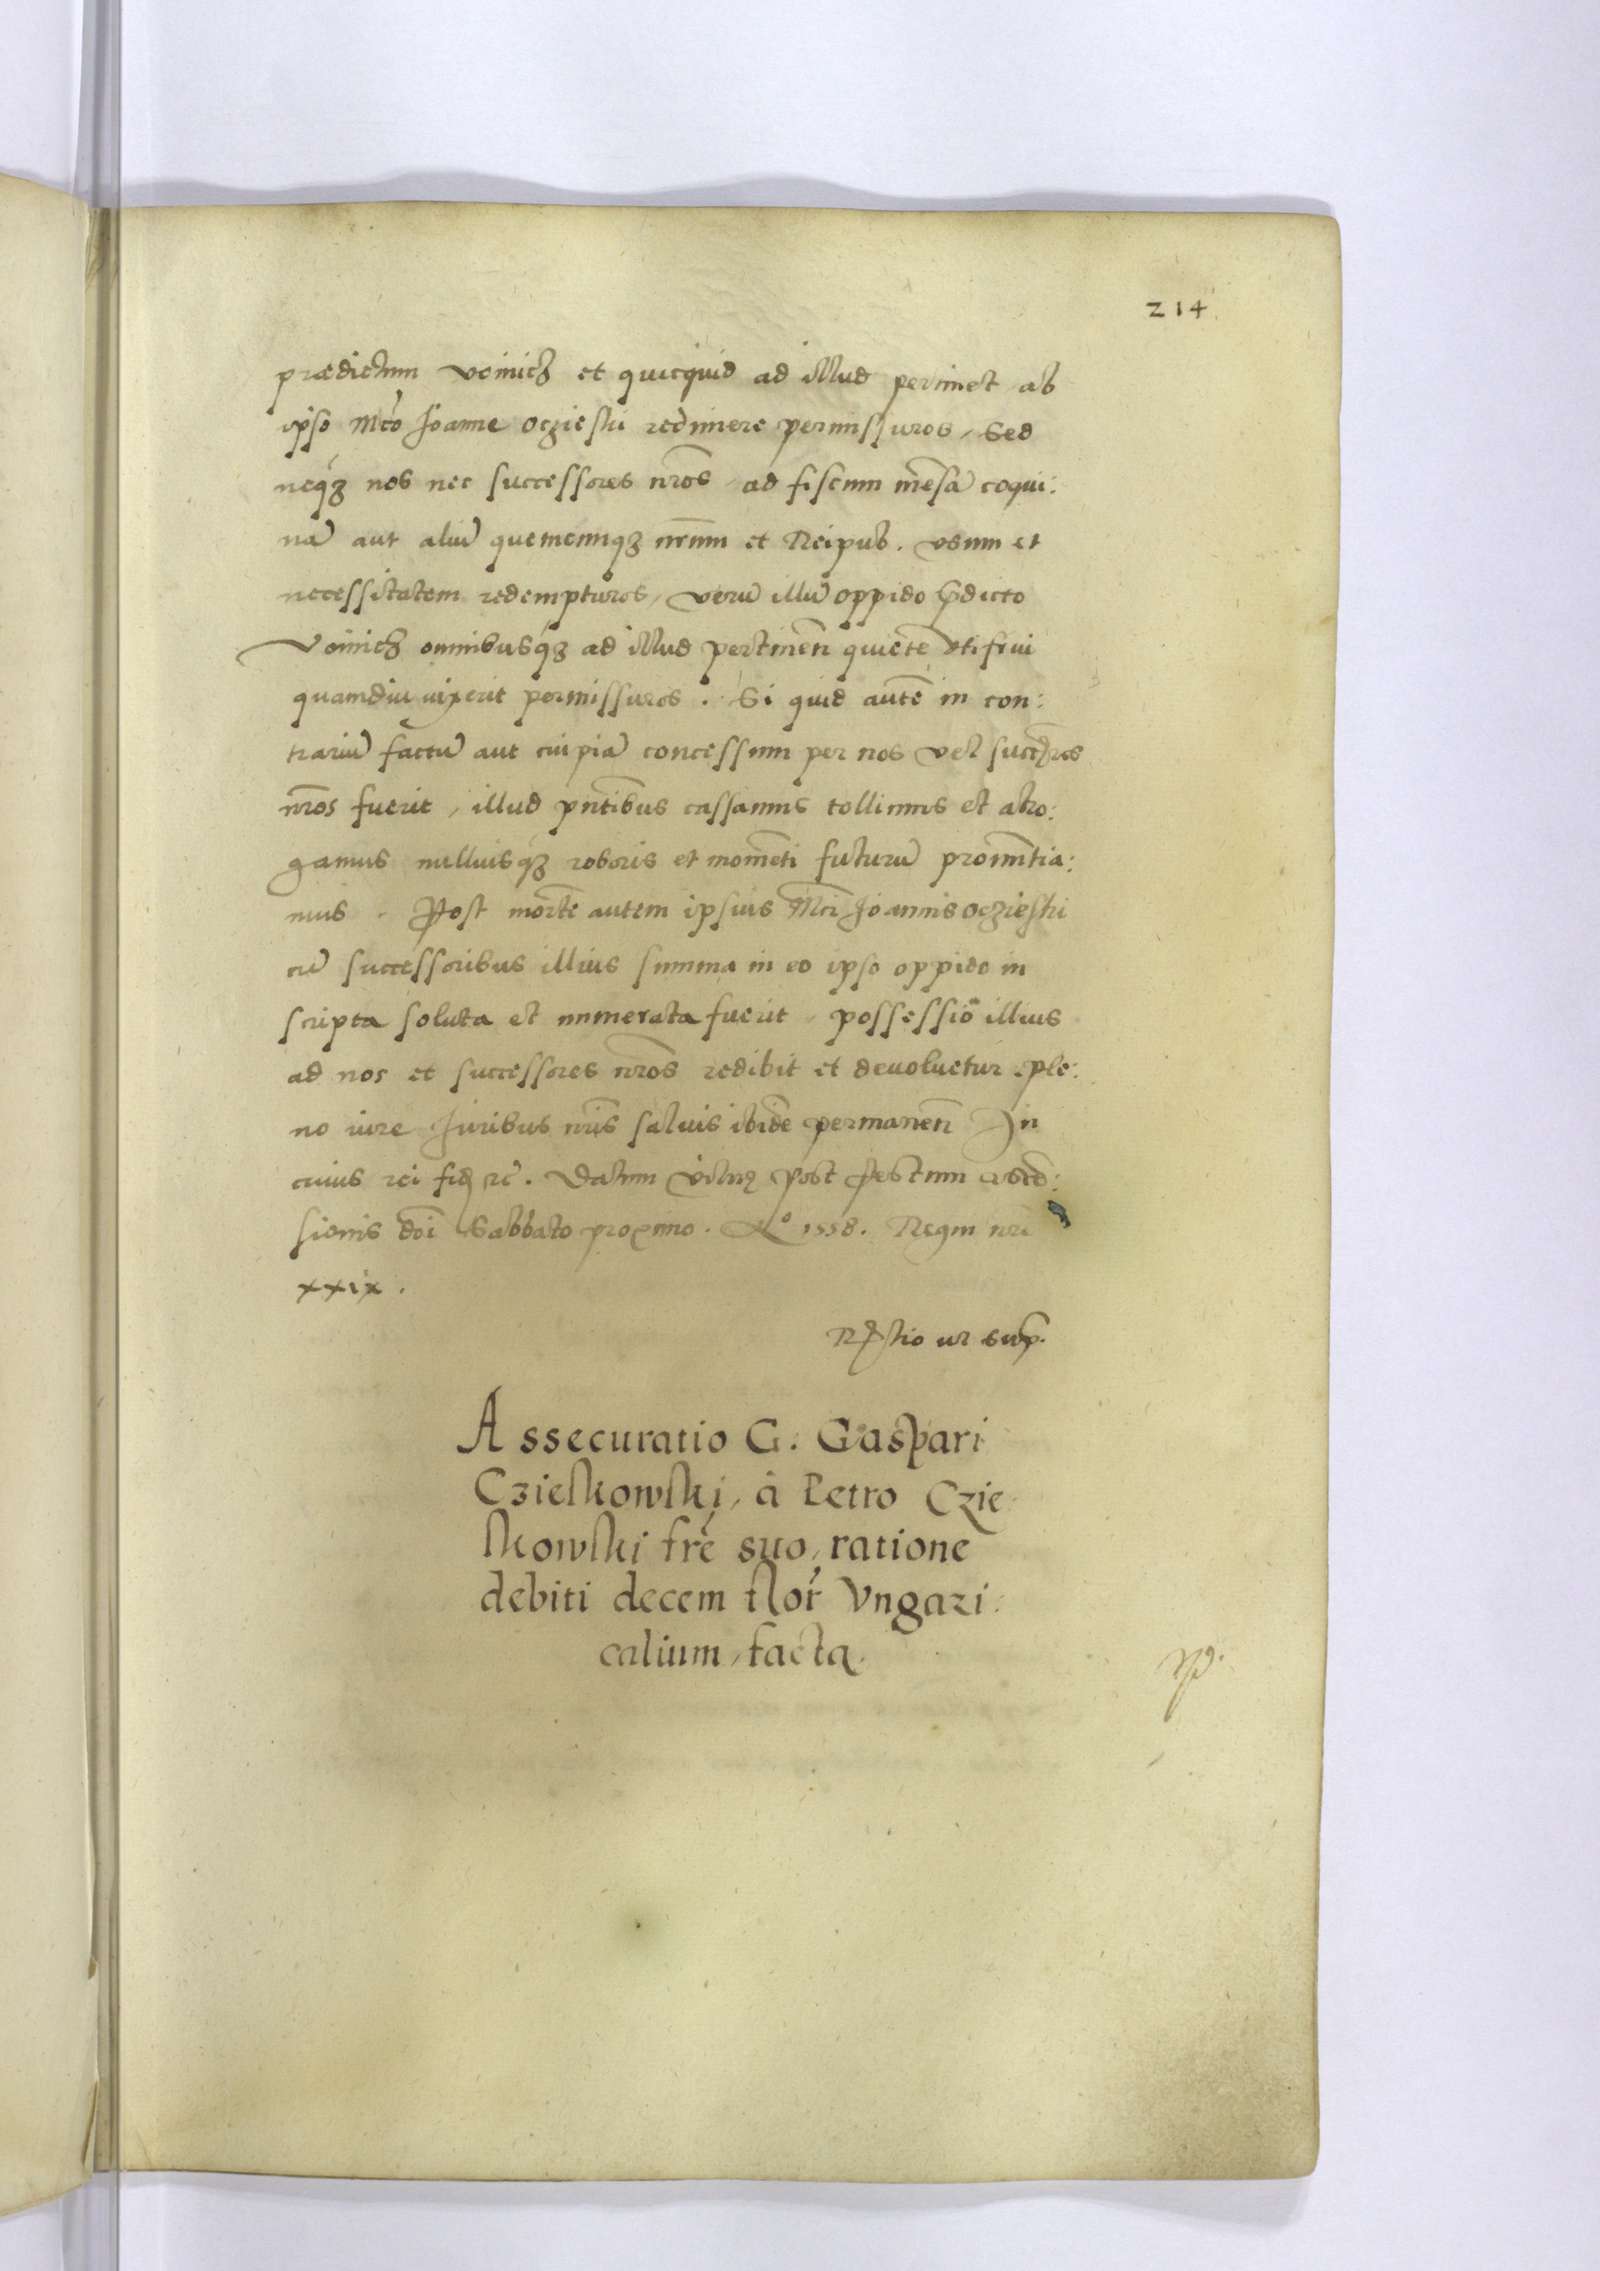 214
prædictum Voinicz et quicquid ad illud pertinet ab
ipso Mco Joanne Oczieski redimere permissuros, Sed
neq3 nos nec successores nros ad fiscum mensã coqui:
nã aut aliũ quemcunq3 nrum et Reipub. vsum et
necessitatem redempturos, verũ illũ oppido pdicto
Voinicz omnibusq3 ad illud pertinen quietè vti frui
quamdiu vixerit permissuros. Si quid autẽ in con:
trariũ factũ aut cuipiã concessum per nos vel succ̃res
nros fuerit, illud pntibus cassamus tollimus et abro:
gamus nulliusq3 roboris et momẽti futurũ pronũtia:
mus. Post mortẽ autem ipsius Mci Joannis Oczieski
cũ successoribus illius summa in eo ipso oppido in
scripta soluta et numerata fuerit, possessio illius
ad nos et successores nros redibit et deuoluetur ple:
no iure Juribus nris saluis ibidẽ permanen In
cuius rei fid etc. Datum Vilnę post festum Ascẽ:
sionis doi Sabbato proximo. Aº 1558. Regni nri
xxix.
Rltio ut sup.
Assecuratio G. Gaspari
Czieskowski, à Petro Czie
skowski fre suo, ratione
debiti decem flor Vngari:
calium, facta.